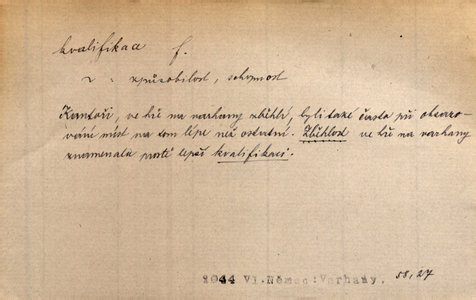 kvalifikace f.
~ = způsobilost, schopnost
Kantoři, ve hře na varhany zběhlí, byli také často při obsazo-
vání míst na tom lépe než ostatní. Zběhlost ve hře na varhany
znamenala prostě lepší kvalifikaci.
1944 VI. Němec: Varhany. 58, 27